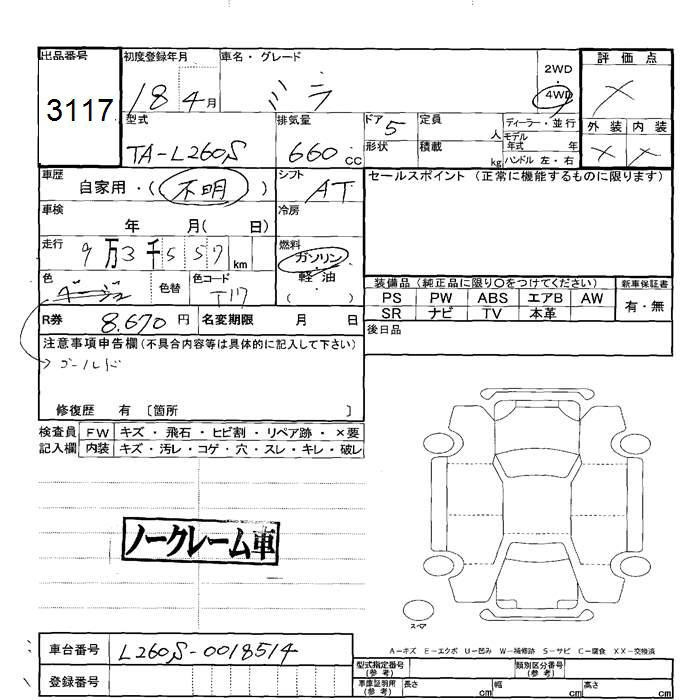 出品番号
3117
初度登録年月
18 4月
車名・グレード
ミラ
2WD
4WD
評価点
×
外装 内装
× ×
型式
TA-L260S
排気量
660 cc
ドア 5
形状
定員 人
積載 kg
ディーラー・並行
モデル年式 年
ハンドル 左・右
車歴
自家用・(不明)
シフト
AT
セールスポイント(正常に機能するものに限ります)
車検
年 月( 日)
冷房
走行
9万3千557km
燃料
ガソリン
軽・油
( )
色
ベージュ
色替
色コード
T17
装備品(純正品に限り○をつけてください)
新車保証書
PS PW ABS エアB AW
有・無
SR ナビ TV 本革
R券 8,670円
名変期限 月 日
後日品
注意事項申告欄(不具合内容等は具体的に記入して下さい)
→ゴールド
修復歴 有 〔箇所 〕
検査員
記入欄
FW キズ・飛石・ヒビ割・リペア跡・×要
内装 キズ・汚レ・コゲ・穴・スレ・キレ・破レ
ノークレーム車
スペア
A-キズ E-エクボ U-凹み W-補修跡 S-サビ C-腐食 XX-交換済
車台番号 L260S-0018514
型式指定番号
(参考)
類別区分番号
(参考)
登録番号
車庫証明用
(参考)
長さ cm 幅 cm 高さ cm